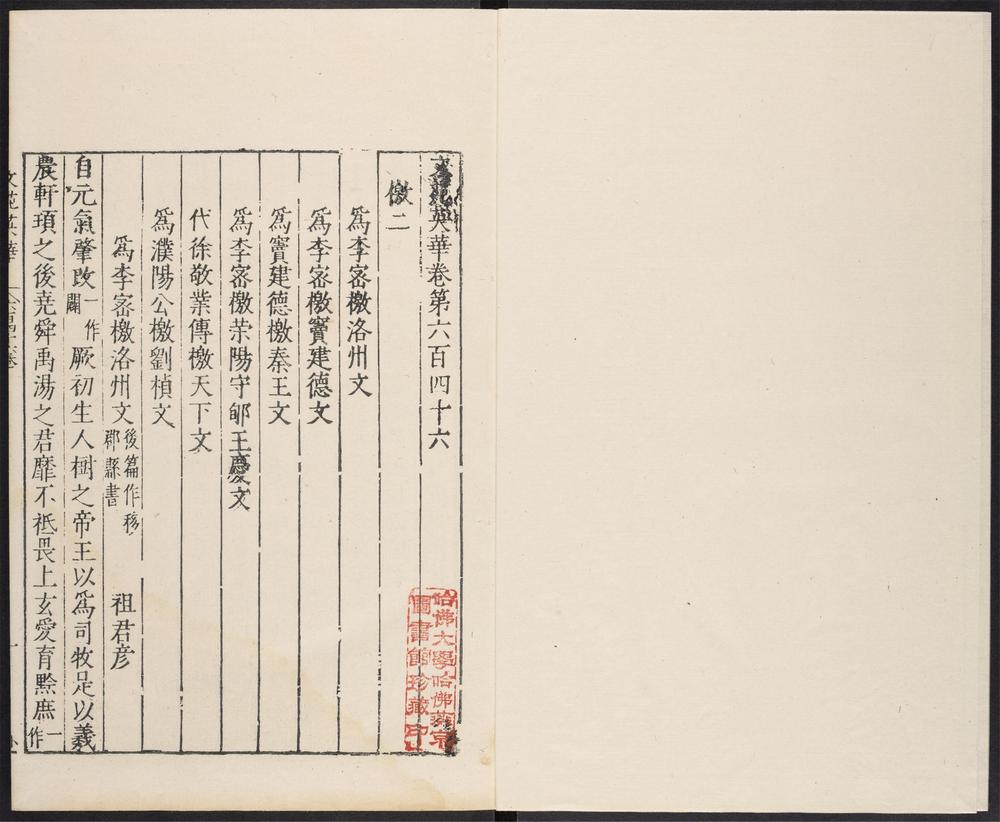 文苑英華卷第六百四十六
檄二
為李密檄洛州文
為李密檄竇建德文
為竇建德檄秦王文
為李密檄荥陽守郇王慶文
代徐敬業傳檄天下文
為濮陽公檄劉楨文
為李密檄洛州文後篇作移郡縣書 祖君彥
自元氣肇改一作闢厥初生人樹之帝王以為司牧是以義
農軒頊之後尭舜禹湯之君靡不祗畏上玄愛育黔庶一作
哈佛大學哈佛燕京
圖書館珍藏印
文苑英華